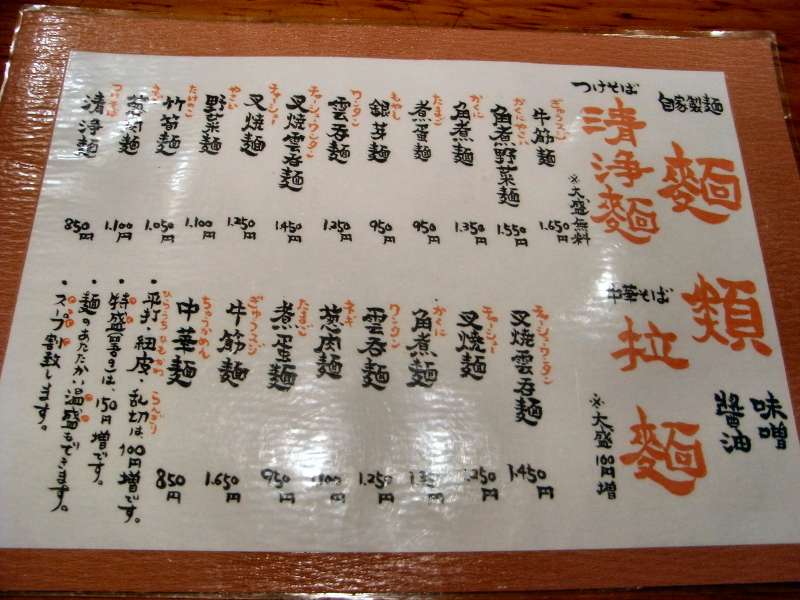 自家製麺
麺類
味噌
醤油
つけそば
清浄麺
※大盛無料
ぎゅうスジ
牛筋麺 1.650円
かくにやさい
角煮野菜麺 1.550円
かくに
角煮麺 1.350円
たまご
煮蛋麺 950円
もやし
銀芽麺 950円
ワンタン
雲呑麺 1.250円
チャーシューワンタン
叉焼雲呑麺 1.450円
チャーシュー
叉焼麺 1.250円
やさい
野菜麺 1.100円
たけのこ
竹筍麺 1.050円
ネギ
葱肉麺 1.100円
つけそば
清浄麺 850円
中華そば
拉麺
※大盛100円増
チャーシューワンタン
叉焼雲呑麺 1.450円
チャーシュー
叉焼麺 円
かくに
角煮麺 円
ワンタン
雲呑麺 1.250円
ネギ
葱肉麺 円
たまご
煮蛋麺 950円
ぎゅうスジ
牛筋麺 1.650円
ちゅうかめん
中華麺 850円
・平打・紐皮・乱切は、100円増です。
・特盛300gは、150円増です。
・麺のあたたかい温盛もできます。
・スープ割致します。